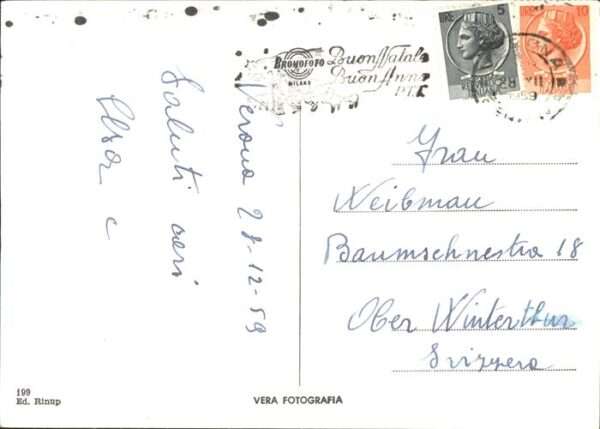 BROMOFOTO
MILANO
Buon Natale
Buon Anno
P.T.T.
LIRE 5
LIRE 10
Verona 28-12-59
Saluti cari
Elsa e
Frau
Weibmau
Baumschnestra 18
Ober Winterthur
Svizzera
199
Ed. Rinup
VERA FOTOGRAFIA